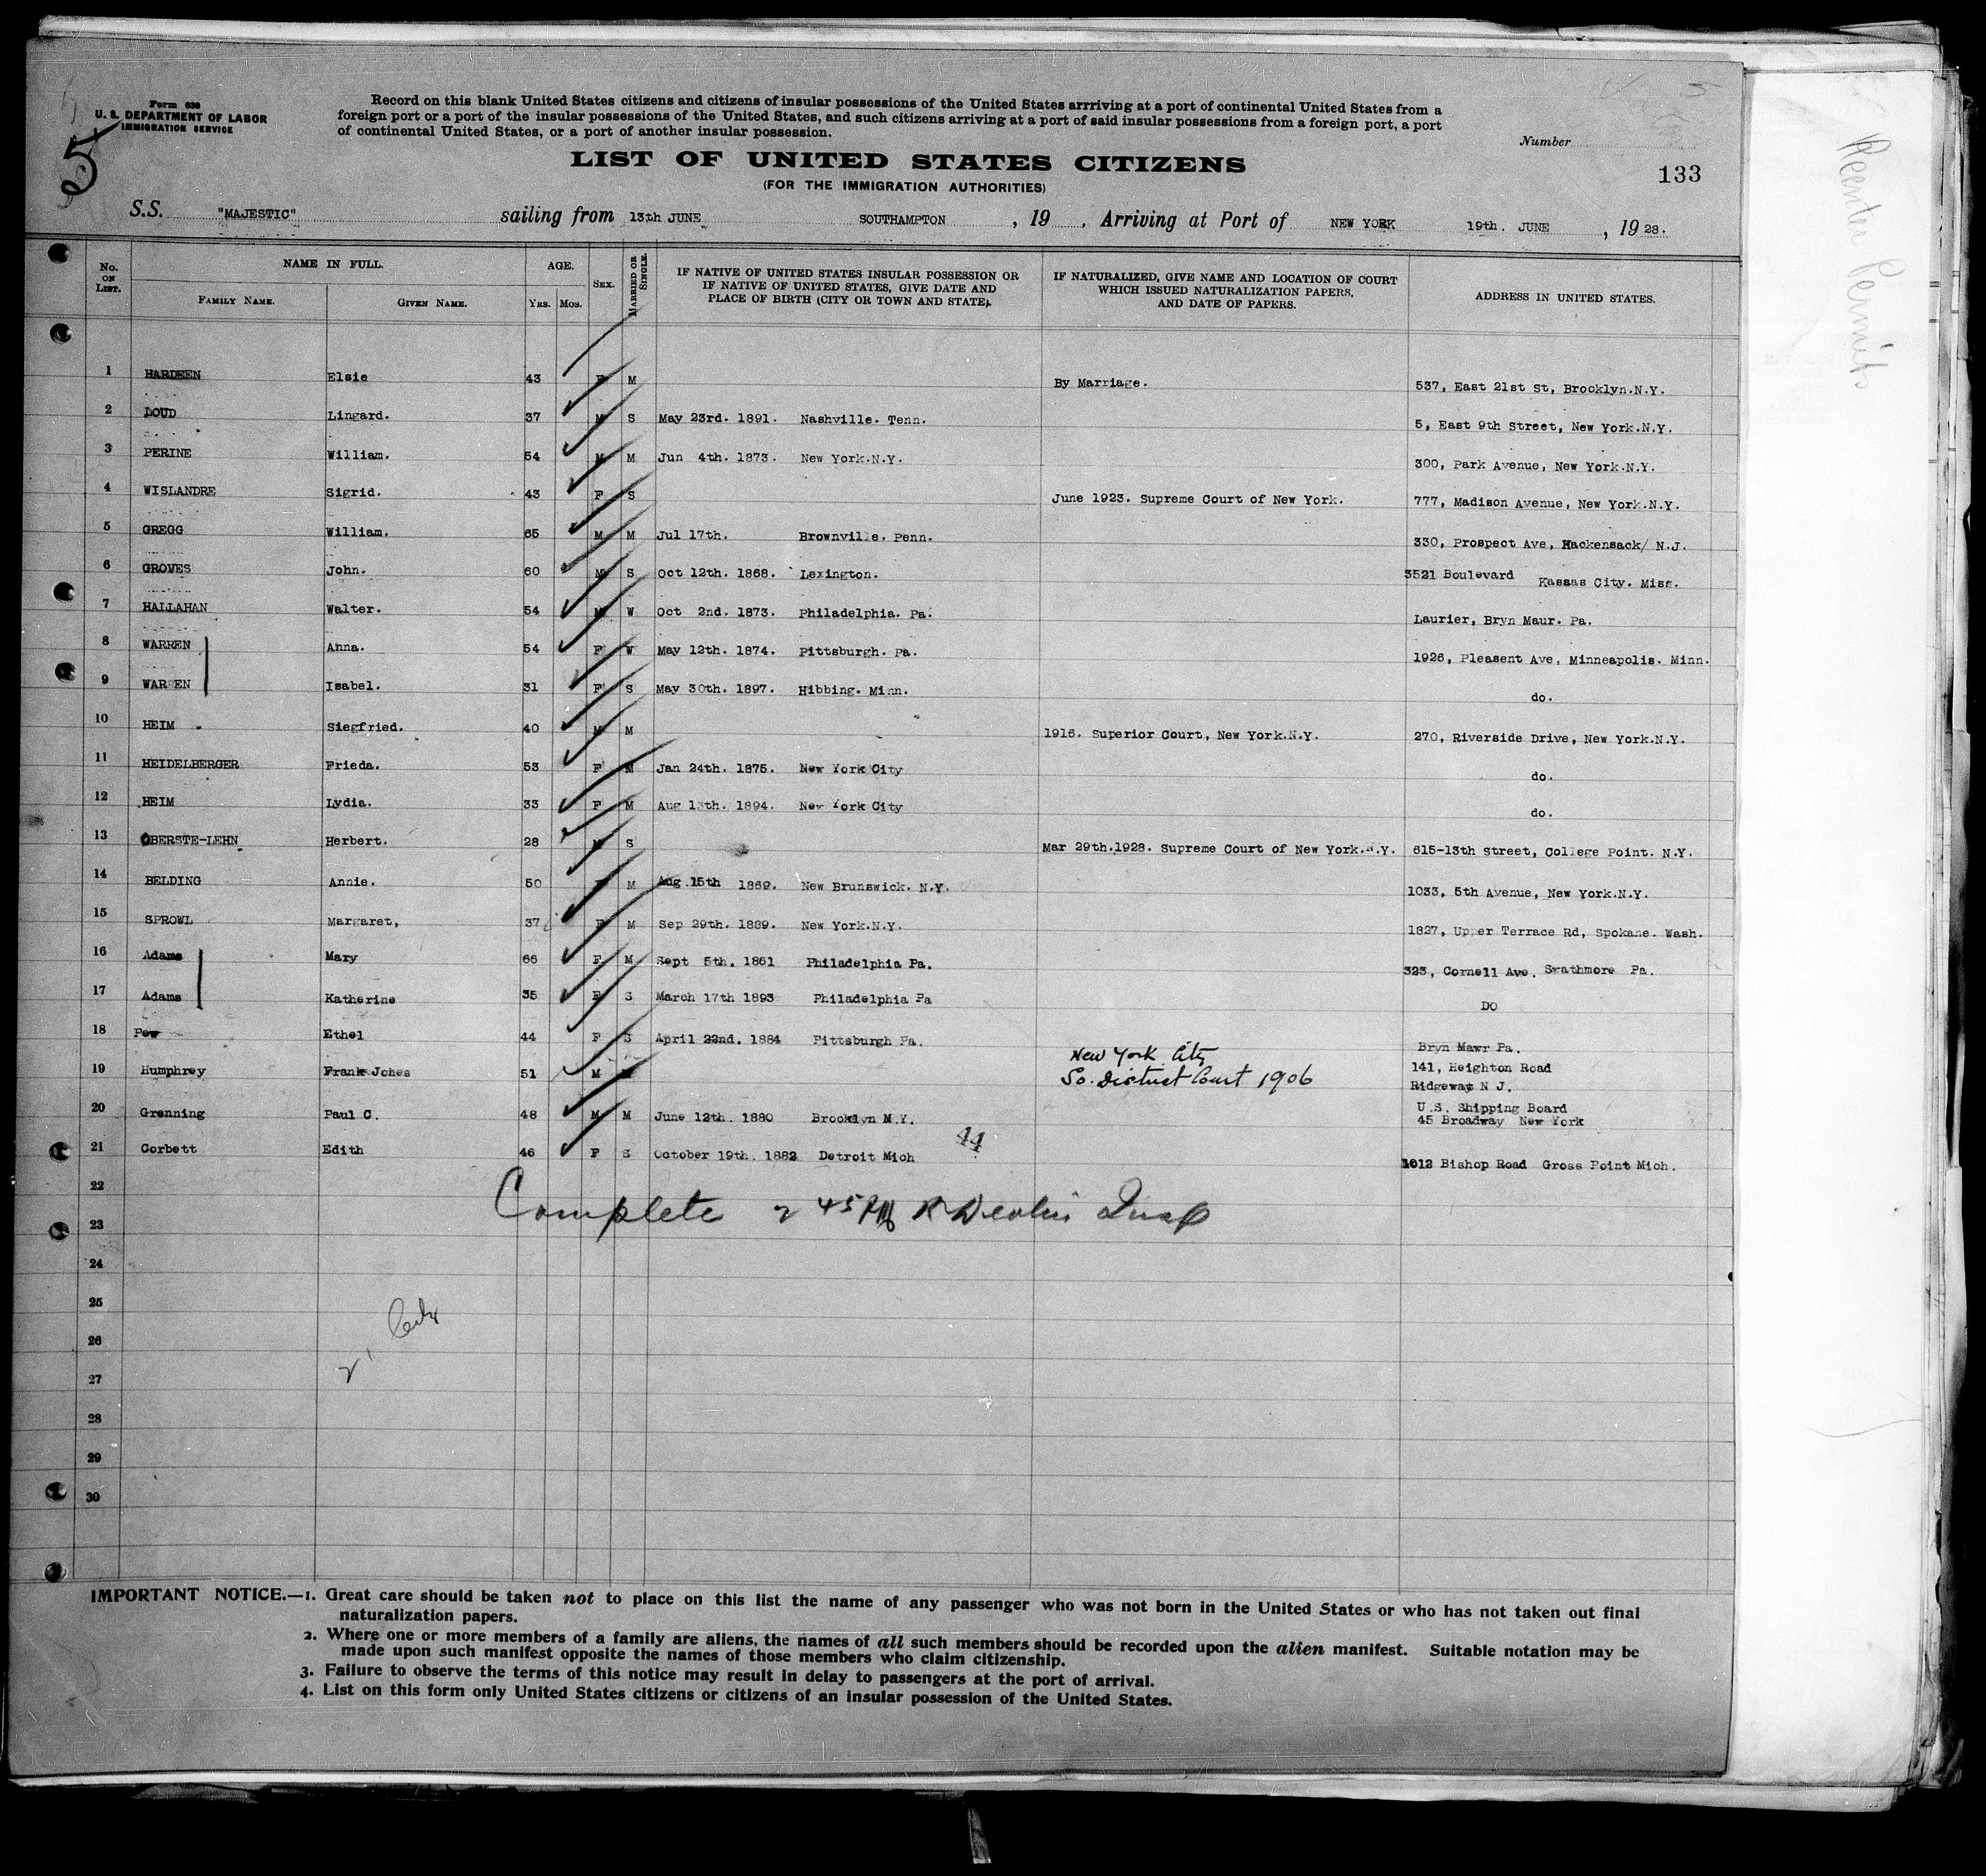 Form 630
U. S. DEPARTMENT OF LABOR
IMMIGRATION SERVICE
5
Record on this blank United States citizens and citizens of insular possessions of the United States arrriving at a port of continental United States from a
foreign port or a port of the insular possessions of the United States, and such citizens arriving at a port of said insular possessions from a foreign port, a port
of continental United States, or a port of another insular possession.
Number
LIST OF UNITED STATES CITIZENS
133
(FOR THE IMMIGRATION AUTHORITIES)
S.S. "MAJESTIC" sailing from 13th JUNE SOUTHAMPTON , 19 , Arriving at Port of NEW YORK 19th. JUNE , 19 28.
No. ON LIST. NAME IN FULL. FAMILY NAME. GIVEN NAME. AGE. Yrs. Mos. SEX. MARRIED OR SINGLE. IF NATIVE OF UNITED STATES INSULAR POSSESSION OR IF NATIVE OF UNITED STATES, GIVE DATE AND PLACE OF BIRTH (CITY OR TOWN AND STATE). IF NATURALIZED, GIVE NAME AND LOCATION OF COURT WHICH ISSUED NATURALIZATION PAPERS, AND DATE OF PAPERS. ADDRESS IN UNITED STATES.
1 HARDEEN Elsie 43 F M By Marriage. 537, East 21st St, Brooklyn.N.Y.
2 DOUD Lingard. 37 M S May 23rd. 1891. Nashville. Tenn. 5, East 9th Street, New York.N.Y.
3 PERINE William. 54 M M Jun 4th. 1873. New York.N.Y. 300, Park Avenue, New York.N.Y.
4 WISLANDRE Sigrid. 43 F S June 1923. Supreme Court of New York. 777, Madison Avenue, New York.N.Y.
5 GREGG William. 65 M M Jul 17th. Brownville. Penn. 330, Prospect Ave, Hackensack/ N.J.
6 GROVES John. 60 M S Oct 12th. 1868. Lexington. 3521 Boulevard Kassas City. Miss.
7 HALLAHAN Walter. 54 M W Oct 2nd. 1873. Philadelphia. Pa. Laurier, Bryn Maur. Pa.
8 WARREN Anna. 54 F W May 12th. 1874. Pittsburgh. Pa. 1926, Pleasent Ave, Minneapolis. Minn.
9 WARREN Isabel. 31 F S May 30th. 1897. Hibbing. Minn. do.
10 HEIM Siegfried. 40 M M 1916. Superior Court, New York.N.Y. 270, Riverside Drive, New York.N.Y.
11 HEIDELBERGER Frieda. 53 F M Jan 24th. 1875. New York City do.
12 HEIM Lydia. 33 F M Aug 13th. 1894. New York City do.
13 OBERSTE-LEHN Herbert. 28 M S Mar 29th.1928. Supreme Court of New York.N.Y. 615-13th Street, College Point. N.Y.
14 BELDING Annie. 50 F M Aug 15th 1869. New Brunswick. N.Y. 1033, 5th Avenue, New York.N.Y.
15 SPROWL Margaret, 37 F M Sep 29th. 1889. New York.N.Y. 1827, Upper Terrace Rd, Spokane. Wash.
16 Adams Mary 66 F M Sept 5th. 1861 Philadelphia Pa. 323, Cornell Ave. Swathmore Pa.
17 Adams Katherine 35 F S March 17th 1893 Philadelphia Pa DO
18 Pew Ethel 44 F S April 22nd. 1884 Pittsburgh Pa. Bryn Mawr Pa.
19 Humphrey Frank Johes 51 M M New York City So. District Court 1906 141, Heighton Road Ridgeway N J.
20 Grenning Paul C. 48 M M June 12th. 1880 Brooklyn M.Y. U.S. Shipping Board 45 Broadway New York
21 Corbett Edith 46 F S October 19th. 1882 Detroit Mich 1012 Bishop Road Gross Point Mich.
22
Complete 2 45 PM R Devlin Insp
23
24
25
26
27
28
29
30
IMPORTANT NOTICE.—1. Great care should be taken not to place on this list the name of any passenger who was not born in the United States or who has not taken out final
naturalization papers.
2. Where one or more members of a family are aliens, the names of all such members should be recorded upon the alien manifest. Suitable notation may be
made upon such manifest opposite the names of those members who claim citizenship.
3. Failure to observe the terms of this notice may result in delay to passengers at the port of arrival.
4. List on this form only United States citizens or citizens of an insular possession of the United States.
Reenter Permits